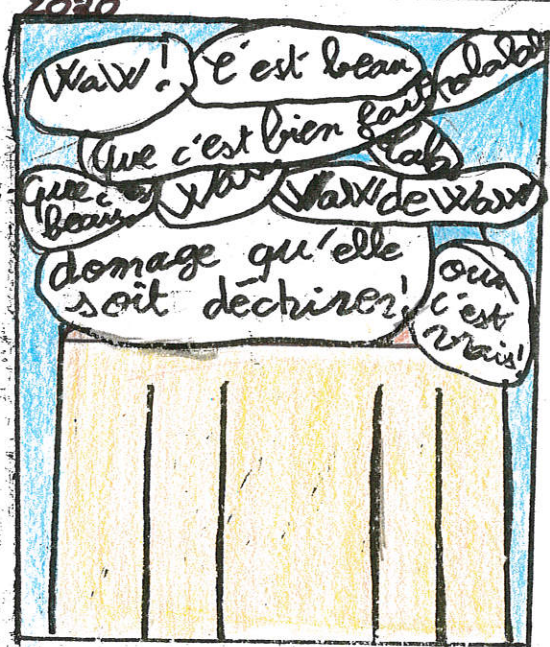 2020
Waw!
C'est beau
holala
Que c'est bien fait
lala
que c'est
beau
Waw
Waw de Waw
domage qu'elle
soit déchirer!
oui
c'est
vrais!